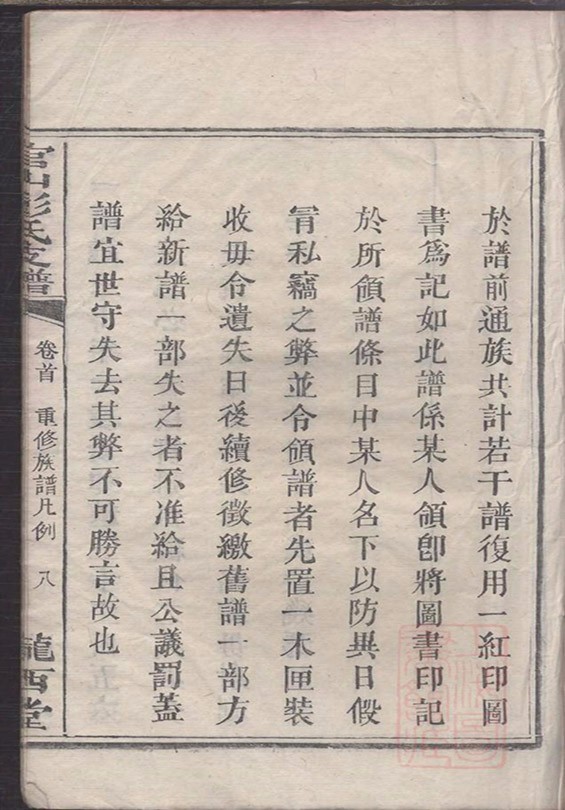 於譜前通族共計若干譜復用一紅印圖
書爲記如此譜係某人領卽將圖書印記
於所領譜條目中某人名下以防異日假
冐私竊之弊並令領譜者先置一木匣裝
收毋令遺失日後續修徵繳舊譜一部方
給新譜一部失之者不准給且公議罰蓋
譜宜世守失去其弊不可勝言故也
官山彭氏支譜
卷首 重修族譜凡例 八
隴西堂